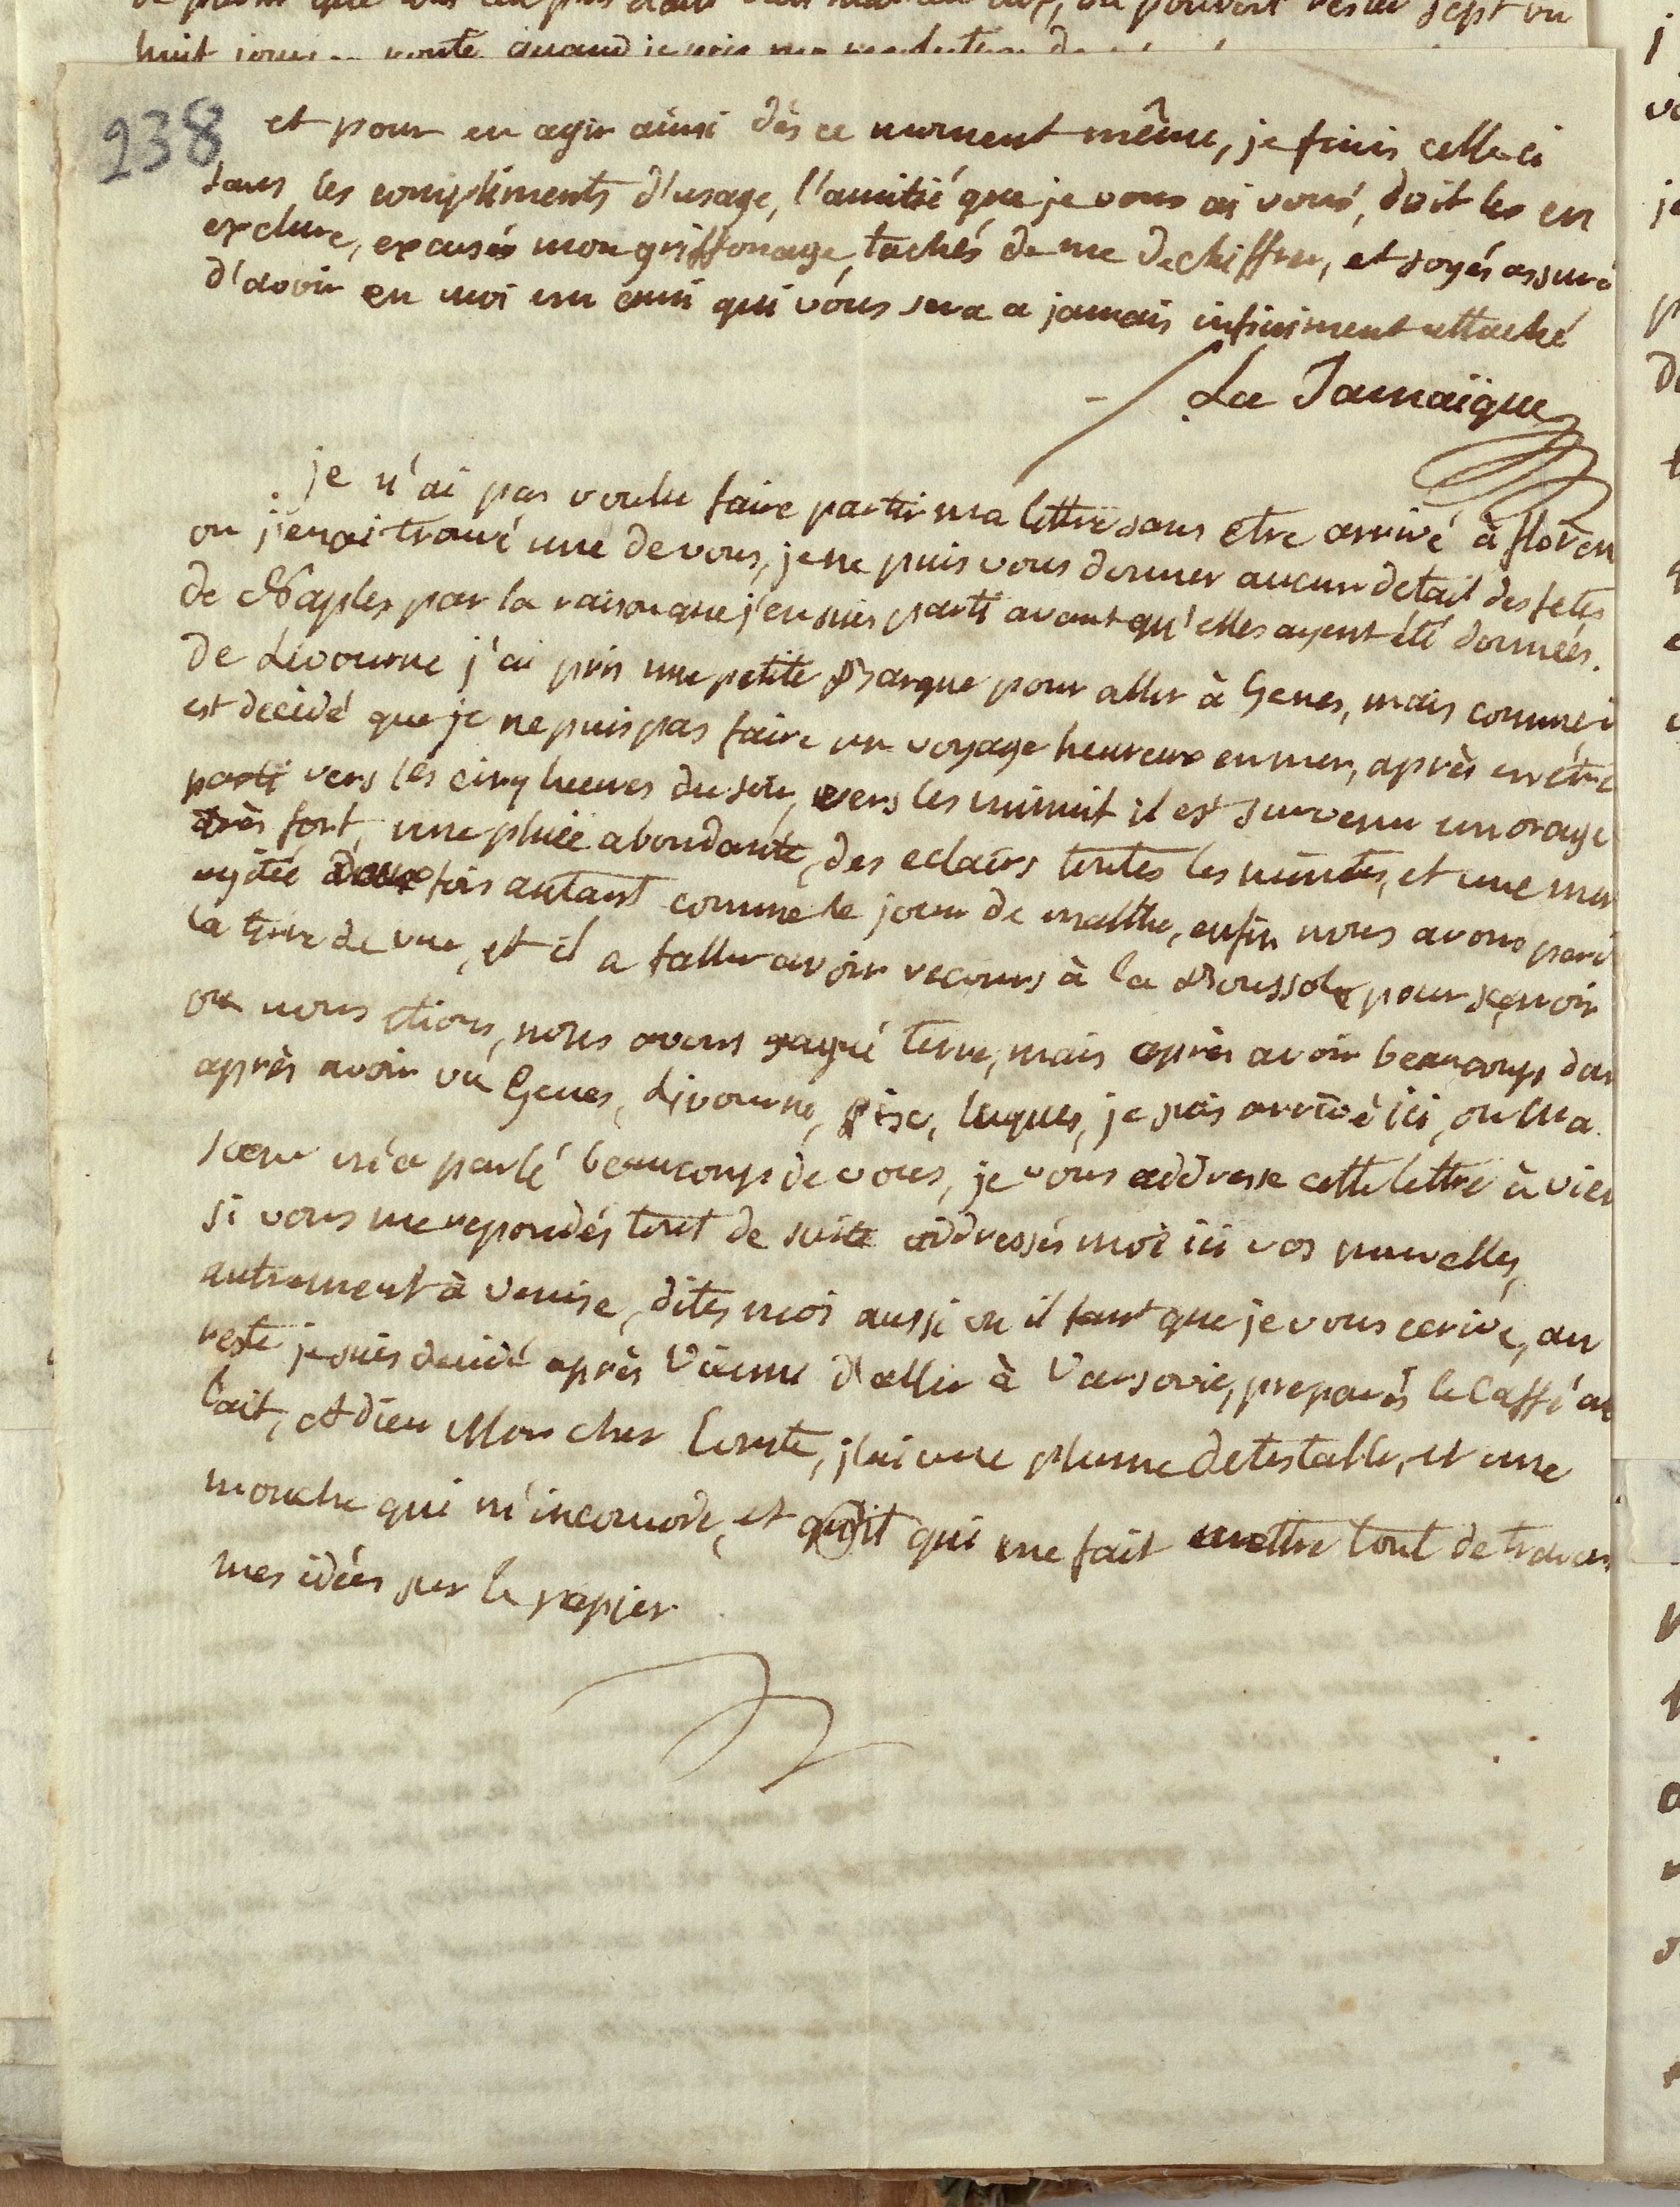 huit jours
238
et pour en agir ainsi dès ce moment même, je finis celle ci
sans les compliments d'usage, l'amitié que je vous ai voué, doit les en
exclure, excusés mon griffonage, tachés de me dechiffrer, et soyés assuré
d'avoir en moi un ami qui vous sera a jamais infiniment attaché
La Jamaïque
je n'ai pas voulu faire partir ma lettre sans etre arrivé à floren
ou j'en ai trouvé une de vous, je ne puis vous donner aucun detail des fetes
de Naples par la raison que j'en suis parti avant qu'elles ayent été données.
de Livourne j'ai pris une petite Barque pour aller à Genes, mais comme i
est decidé que je ne puis pas faire un voyage heureux en mer, après en être
parti vers les cinq heures du soir, vers les minuit il est survenu un orage
très fort, une pluie abondante, des eclairs toutes les minutes, et une mer
agitée deux fois autant comme le jour de malthe, enfin nous avons perd
la terre de vue, et il a fallu avoir recours à la Boussole pour sçavoir
ou nous etions, nous avons gagné terre, mais après avoir beaucoup dan
après avoir vu Genes, Livourne, Pise, luques, je suis arrivé ici, ou ma
soeur m'a parlé beaucoup de vous, je vous addresse cette lettre à vien
si vous me repondés tout de suite addressés moi ici vos nouvelles,
autrement à Venise, dites moi aussi ou il faut que je vous ecrive, au
reste je suis decidé après Vienne d'aller à Varsovie, preparés le Caffé au
lait, Adieu Mon cher Comte, j'ai une plume detestable, et une
mouche qui m'incomode, et qui me fait mettre tout de travers
mes idées sur le papier